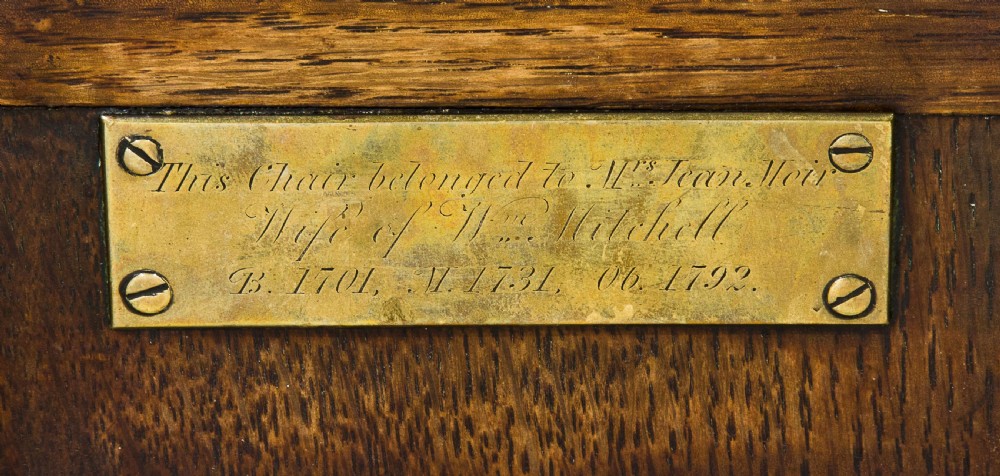 This Chair belonged to Mrs. Jean Moir
Wife of Wm. Mitchell
B. 1701, M. 1731, Ob. 1792.